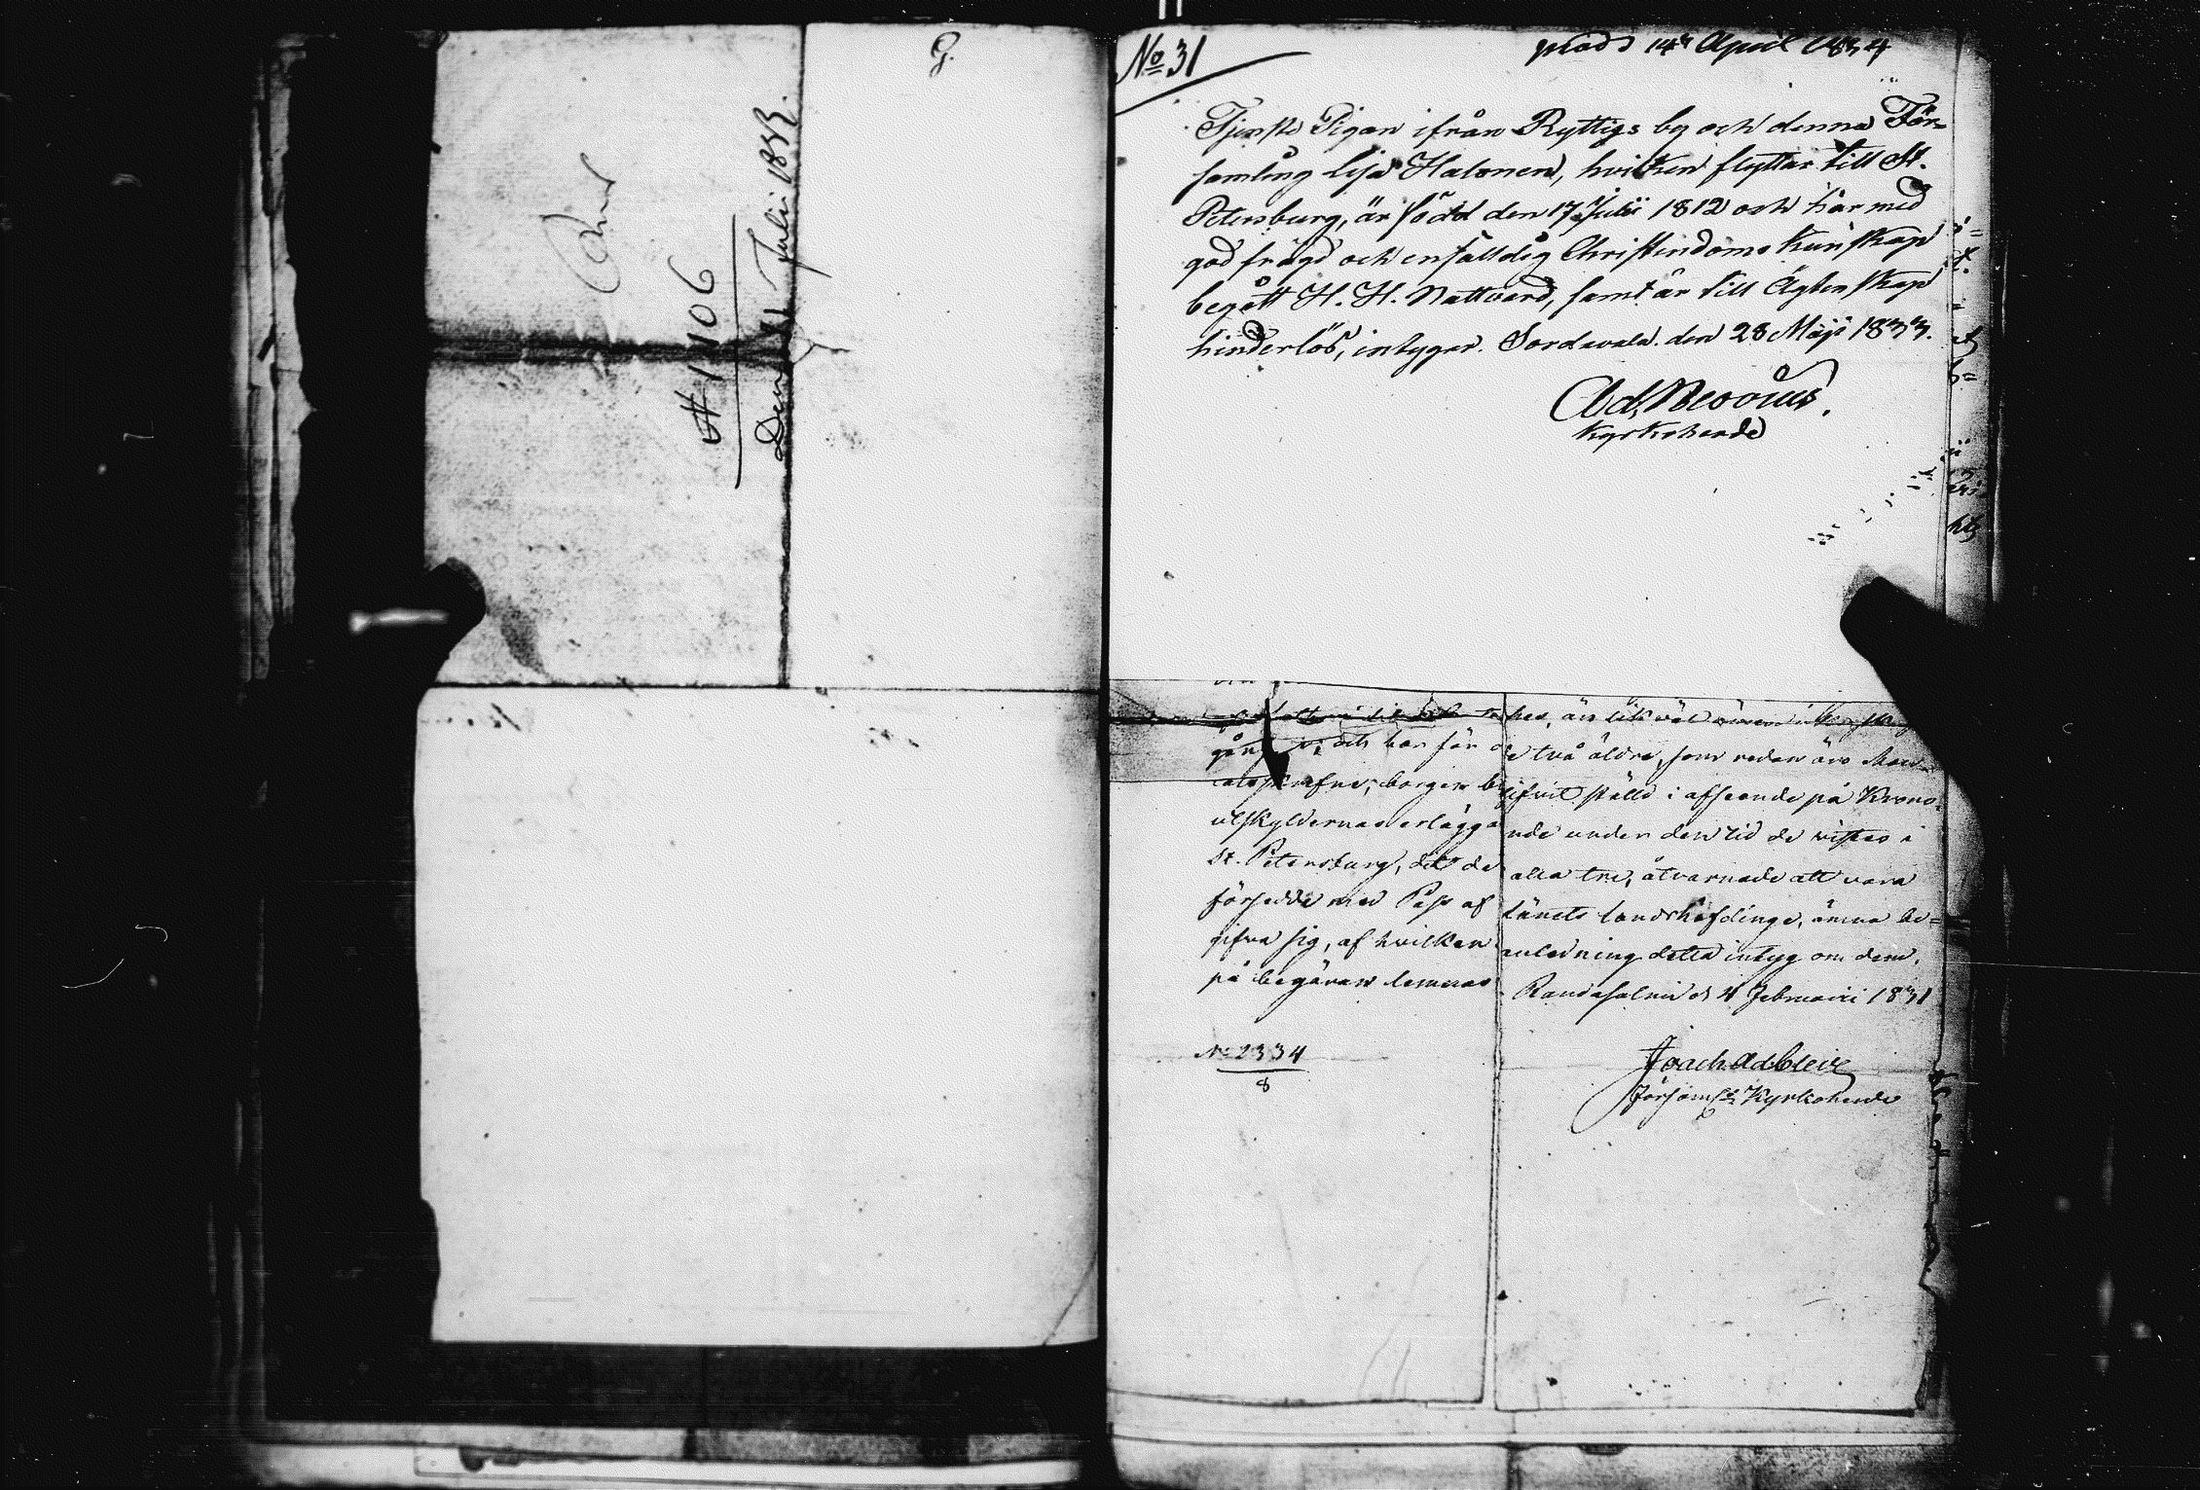 G.
№ 1106
Den Juli 183
No 31
prod 14 April 1834
Tjenste Pigan ifrån Ryttigs by och denna För=
samling Lisa Halonen, hvilken flyttar till St.
Petersburg, är född den 17 Julii 1812 och har med
god frägd och enfalldig Christendoms kunskap
begått H. H. Nattvard, samt är till Ägtenskap
hinderlös, intygar. Sordavala. den 28 Maji 1833.
Ad. Neovius.
Kyrkoherde
hes, är likväl
och har för de två äldre, som redan äro Man=
talsskrefne, borgen blifvit ställd i afseende på Krono=
utskyldernas erläggande under den tid de vistas i
St. Petersburg, dit de alla tre, åtvarnade att vara
försedde med Pass af Länets Landshöfdinge, ämna be=
gifva sig, af hvilken anledning detta intyg om dem,
på begäran lemnas. Randasalmi d 4 Februarii 1831
Joach. Ad. Cleve
Församl. Kyrkoherde
No 2334
8